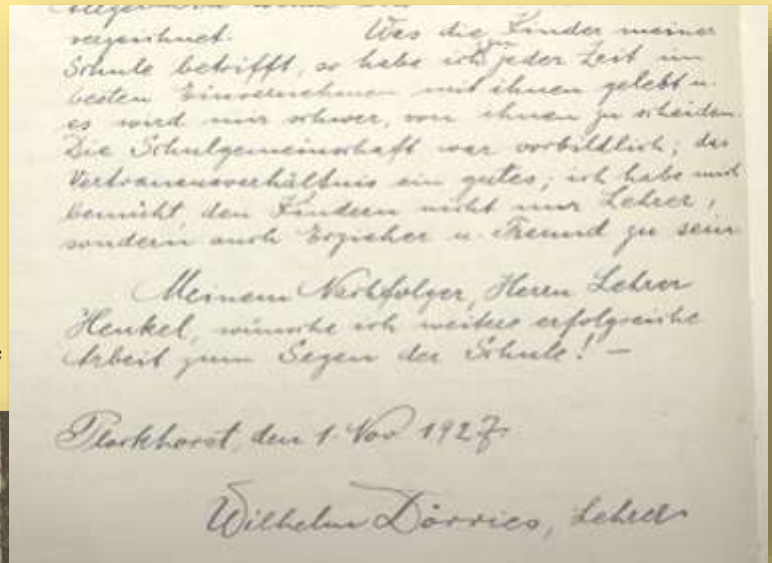 verzeichnet. Was die Kinder meiner
Schule betrifft, so habe ich jeder Zeit im
besten Einvernehmen mit ihnen gelebt u.
es wird mir schwer, von ihnen zu scheiden.
Die Schulgemeinschaft war vorbildlich; das
Vertrauensverhältnis ein gutes; ich habe mich
bemüht, den Kindern nicht nur Lehrer,
sondern auch Erzieher u. Freund zu sein
Meinem Nachfolger, Herrn Lehrer
Henkel, wünsche ich weitere erfolgreiche
Arbeit zum Segen der Schule! –
Plockhorst, den 1. Nov 1927
Wilhelm Dörries, Lehrer